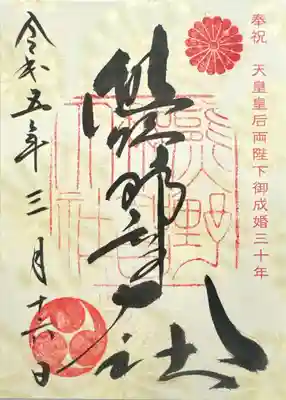 奉祝 天皇皇后両陛下御成婚三十年
熊野
令和五年三月十六日